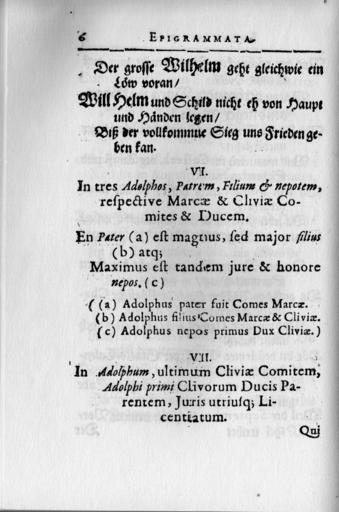 6 EPIGRAMMATA
Der grosse Wilhelm geht gleichwie ein
Löw voran/
Will Helm und Schild nicht eh von Haupt
und Händen legen/
Biß der vollkommne Sieg uns Frieden ge-
ben kan.
VI.
In tres Adolphos, Patrem, Filium & nepotem,
respective Marcæ & Cliviæ Co-
mites & Ducem.
En Pater (a) est magnus, sed major filius
(b) atq;
Maximus est tandem jure & honore
nepos. (c)
((a) Adolphus pater fuit Comes Marcæ.
(b) Adolphus filius Comes Marcæ & Cliviæ.
(c) Adolphus nepos primus Dux Cliviæ.)
VII.
In Adolphum, ultimum Cliviæ Comitem,
Adolphi primi Clivorum Ducis Pa-
rentem, Juris utriusq; Li-
centiatum.
Qui